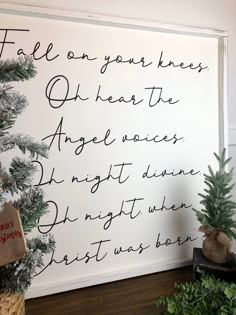 Fall on your knees.
Oh hear the
Angel voices.
Oh night divine
Oh night, when
Christ was born